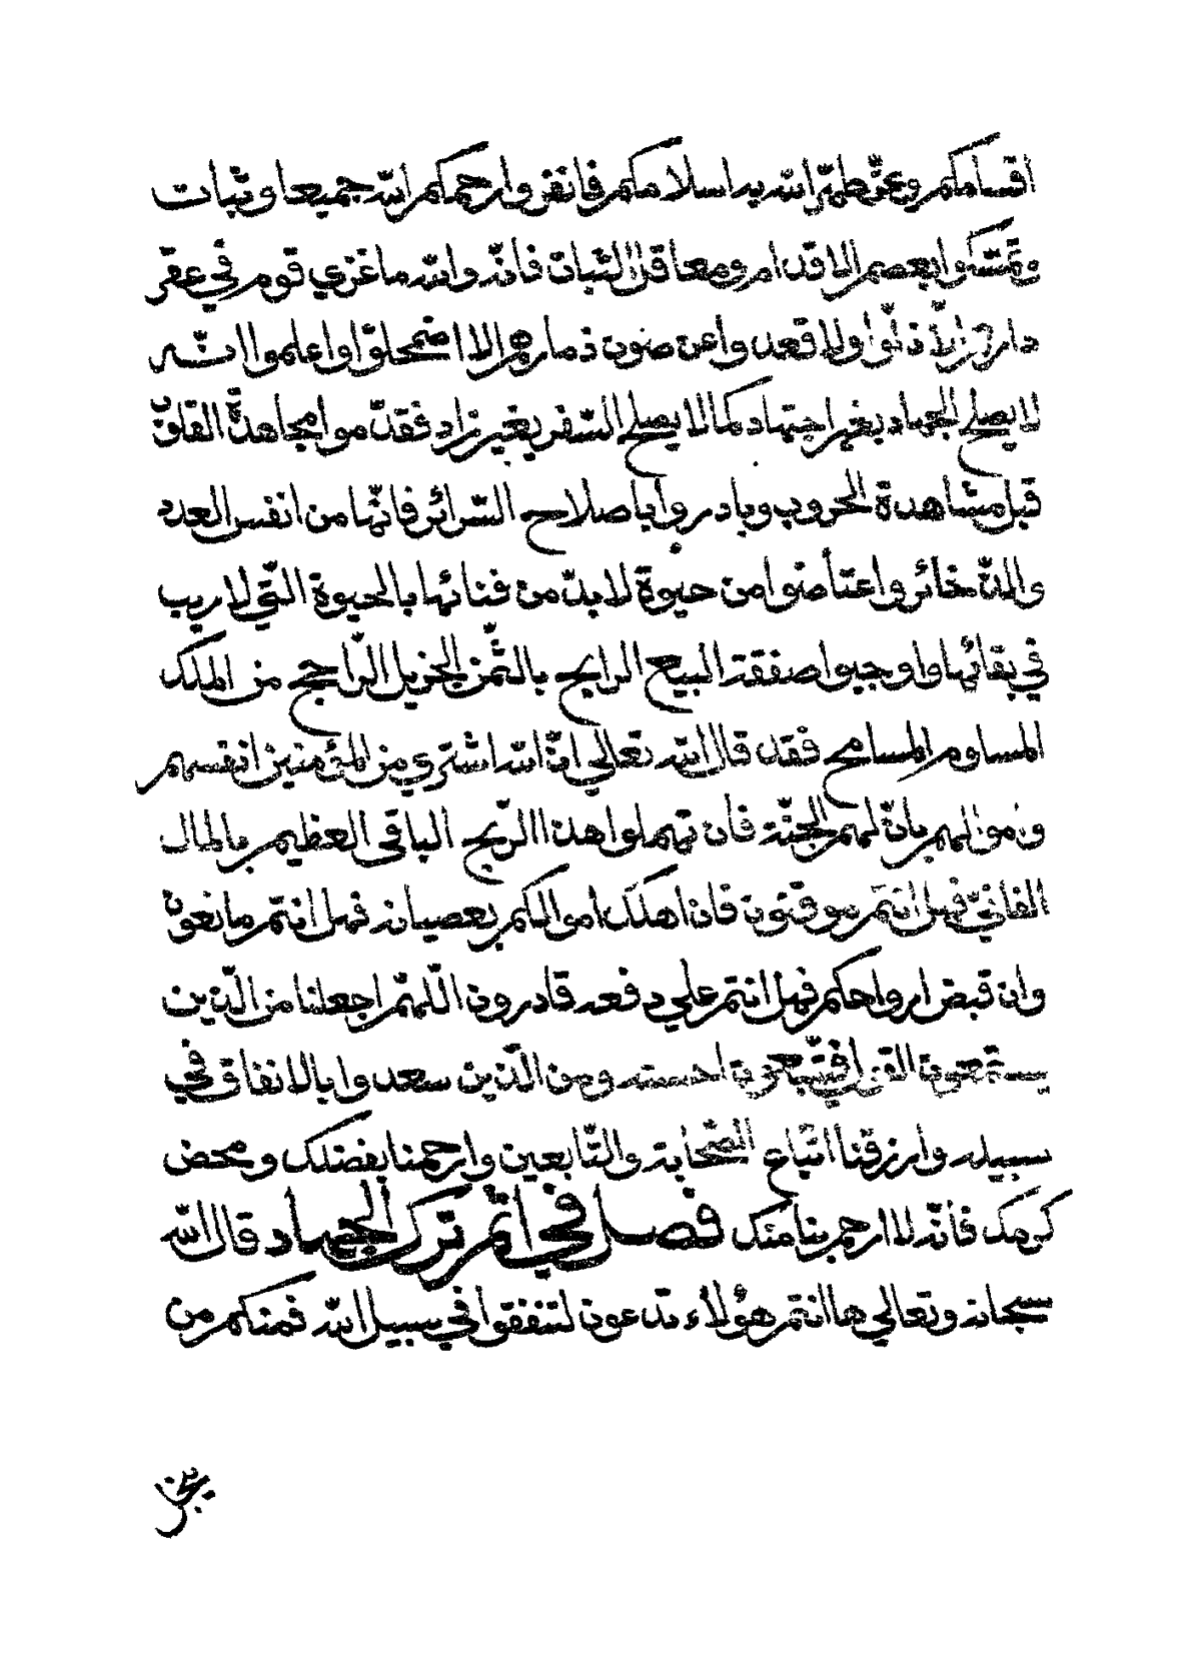 اقسامكم وعن ظلمة الله به اسلامكم فانفروا رحمكم الله جميعا وثبات
وتمسّكوا بعصم الاقدام ومعاقل الثبات فانّه والله ما غزي قوم في عقر
دارهم الّا ذلّوا ولا قعدوا عن صون ذمارهم الا اضمحلوّا واعلموا انّه
لا يصلح الجهاد بغير اجتهاد كما لا يصلح السّفر بغير زاد فقدّموا مجاهدة القلوب
قبل مشاهدة الحروب وبادروا باصلاح السّرائر فانّها من انفس العدد
والذّخائر واعتاضوا من حيوة لا بدّ من فنائها بالحيوة الّتي لا ريب
في بقائها واوجبوا صفقة البيع الرابح بالثّمن الجزيل الرّاجح من الملك
المساوم المسامح فقد قال الله تعالي انّ الله اشتري من المؤمنين انفسهم
وموالهم بانّ لهم الجنّة فان تهملوا هذا الرّبح الباقي العظيم بالمال
الفاني فهل انتم موقنون فان اهلك اموالكم بعصيانه فهل انتم مانعون
وان قبض ارواحكم فهل انتم علي دفعه قادرون اللّهمّ اجعلنا من الّذين
يستمعون القول فيتّبعون احسنه ومن الّذين سعدوا بالانفاق في
سبيله وارزقنا اتّباع الصّحابة والتّابعين وارحمنا بفضلك ومحض
كرمك فانّه لا ارحم بنا منك فصل في اثم ترك الجهاد قال الله
سبحانه وتعالي ها انتم هؤلاء تدعون لتنفقوا في سبيل الله فمنكم من
يبخل